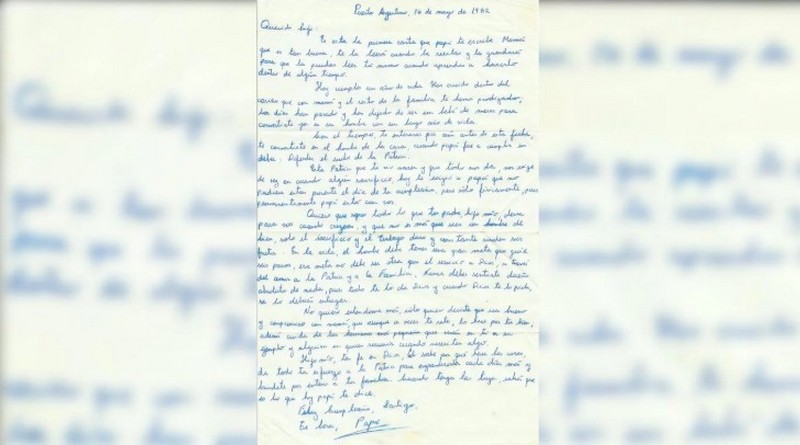 Puerto Argentino, 16 de mayo de 1982
Querido hijo:
Es esta la primera carta que papá te escribe. Mamá
que es tan buena, te la leerá cuando la reciba y la guardará
para que la puedas leer tú mismo cuando aprendas a hacerlo
dentro de algún tiempo.
Hoy cumples un año de vida. Has crecido dentro del
cariño que con mamá y el resto de la familia te hemos prodigado,
los días han pasado y has dejado de ser un bebé de meses para
convertirte ya en un hombre con un largo año de vida.
Con el tiempo, te enterarás que aún antes de esta fecha,
te convertiste en el hombre de la casa, cuando papá fue a cumplir su
deber: Defender el suelo de la Patria.
Esta Patria que te vio nacer y que todo nos da, nos exige
de vez en cuando algún sacrificio, hoy le exigió a papá que no
pudiera estar presente el día de tu cumpleaños, pero sólo físicamente, pues
permanentemente papá está con vos.
Quiero que sepas todo lo que tus padres, hijo mío, desean
para vos cuando crezcas, y que no es más que seas un hombre de
bien, sólo el sacrificio y el trabajo duro y constante rinden sus
frutos. En la vida, el hombre debe tener una gran meta que guíe
sus pasos, esa meta no debe ser otra que el servir a Dios, a través
del amor a la Patria y a la Familia. Nunca debes sentirte dueño
absoluto de nada, pues todo te lo da Dios y cuando Dios te lo pida,
se lo deberás entregar.
No quiero extenderme más, sólo quiero decirte que seas bueno
y compresivo con mamá, que aunque a veces te rete, lo hace por tu bien,
además cuida de tus hermanos más pequeños que verán en ti a un
ejemplo y alguien en quien recurrir cuando necesiten algo.
Hijo mío, ten fe en Dios, Él sabe por qué hace las cosas,
da todo tu esfuerzo a la Patria para engrandecerla cada día más y
bríndate por entero a tu familia. Cuando tengas tus hijos, sabrás que
es lo que hoy papá te dice.
Feliz cumpleaños, Santiago.
Tu
Papá